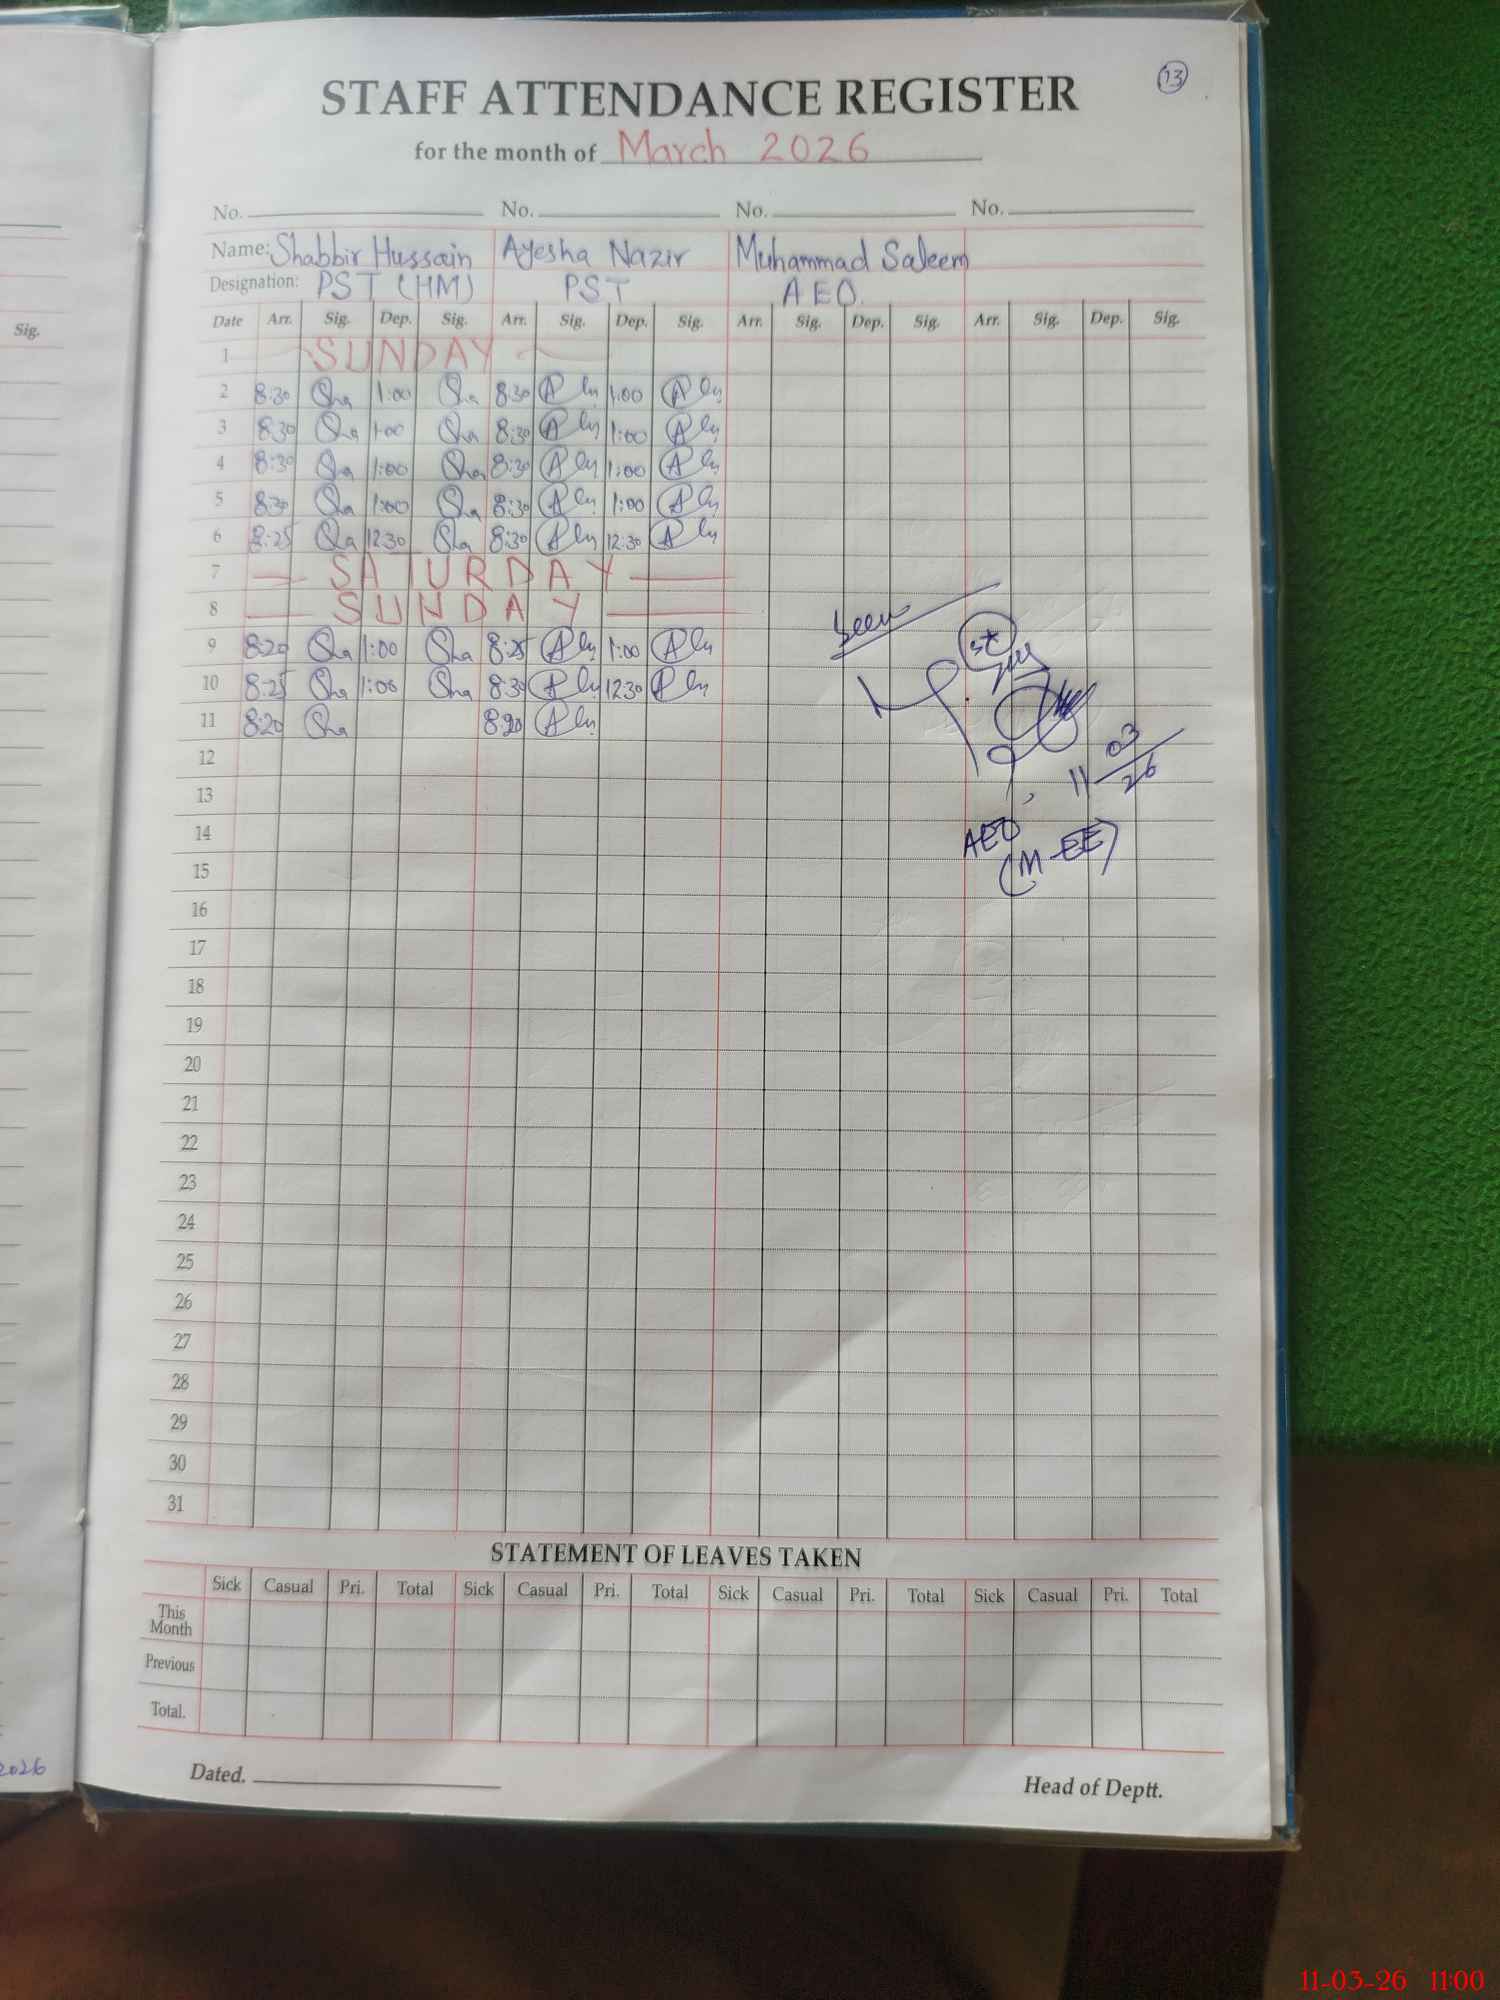 13
STAFF ATTENDANCE REGISTER
for the month of March 2026
No. No. No. No.
Name: Shabbir Hussain Ayesha Nazir Muhammad Saleem
Designation: PST (HM) PST AEO.
Sig.
Date Arr. Sig. Dep. Sig. Arr. Sig. Dep. Sig. Arr. Sig. Dep. Sig. Arr. Sig. Dep. Sig.
1 SUNDAY
2 8:30 Sha 1:00 Sha 8:30 1:00
3 8:30 Sha 1:00 Sha 8:30 1:00
4 8:30 Sha 1:00 Sha 8:30 1:00
5 8:30 Sha 1:00 Sha 8:30 1:00
6 8:25 Sha 12:30 Sha 8:30 12:30
7 SATURDAY
8 SUNDAY
Seen
9 8:20 Sha 1:00 Sha 8:25 1:00
10 8:25 Sha 1:00 Sha 8:30 12:30
11 8:20 Sha 8:20
12
11 03/26
13
14
AEO
(M-EE)
15
16
17
18
19
20
21
22
23
24
25
26
27
28
29
30
31
STATEMENT OF LEAVES TAKEN
Sick Casual Pri. Total Sick Casual Pri. Total Sick Casual Pri. Total Sick Casual Pri. Total
This
Month
Previous
Total.
2026
Dated.
Head of Deptt.
11-03-26 11:00